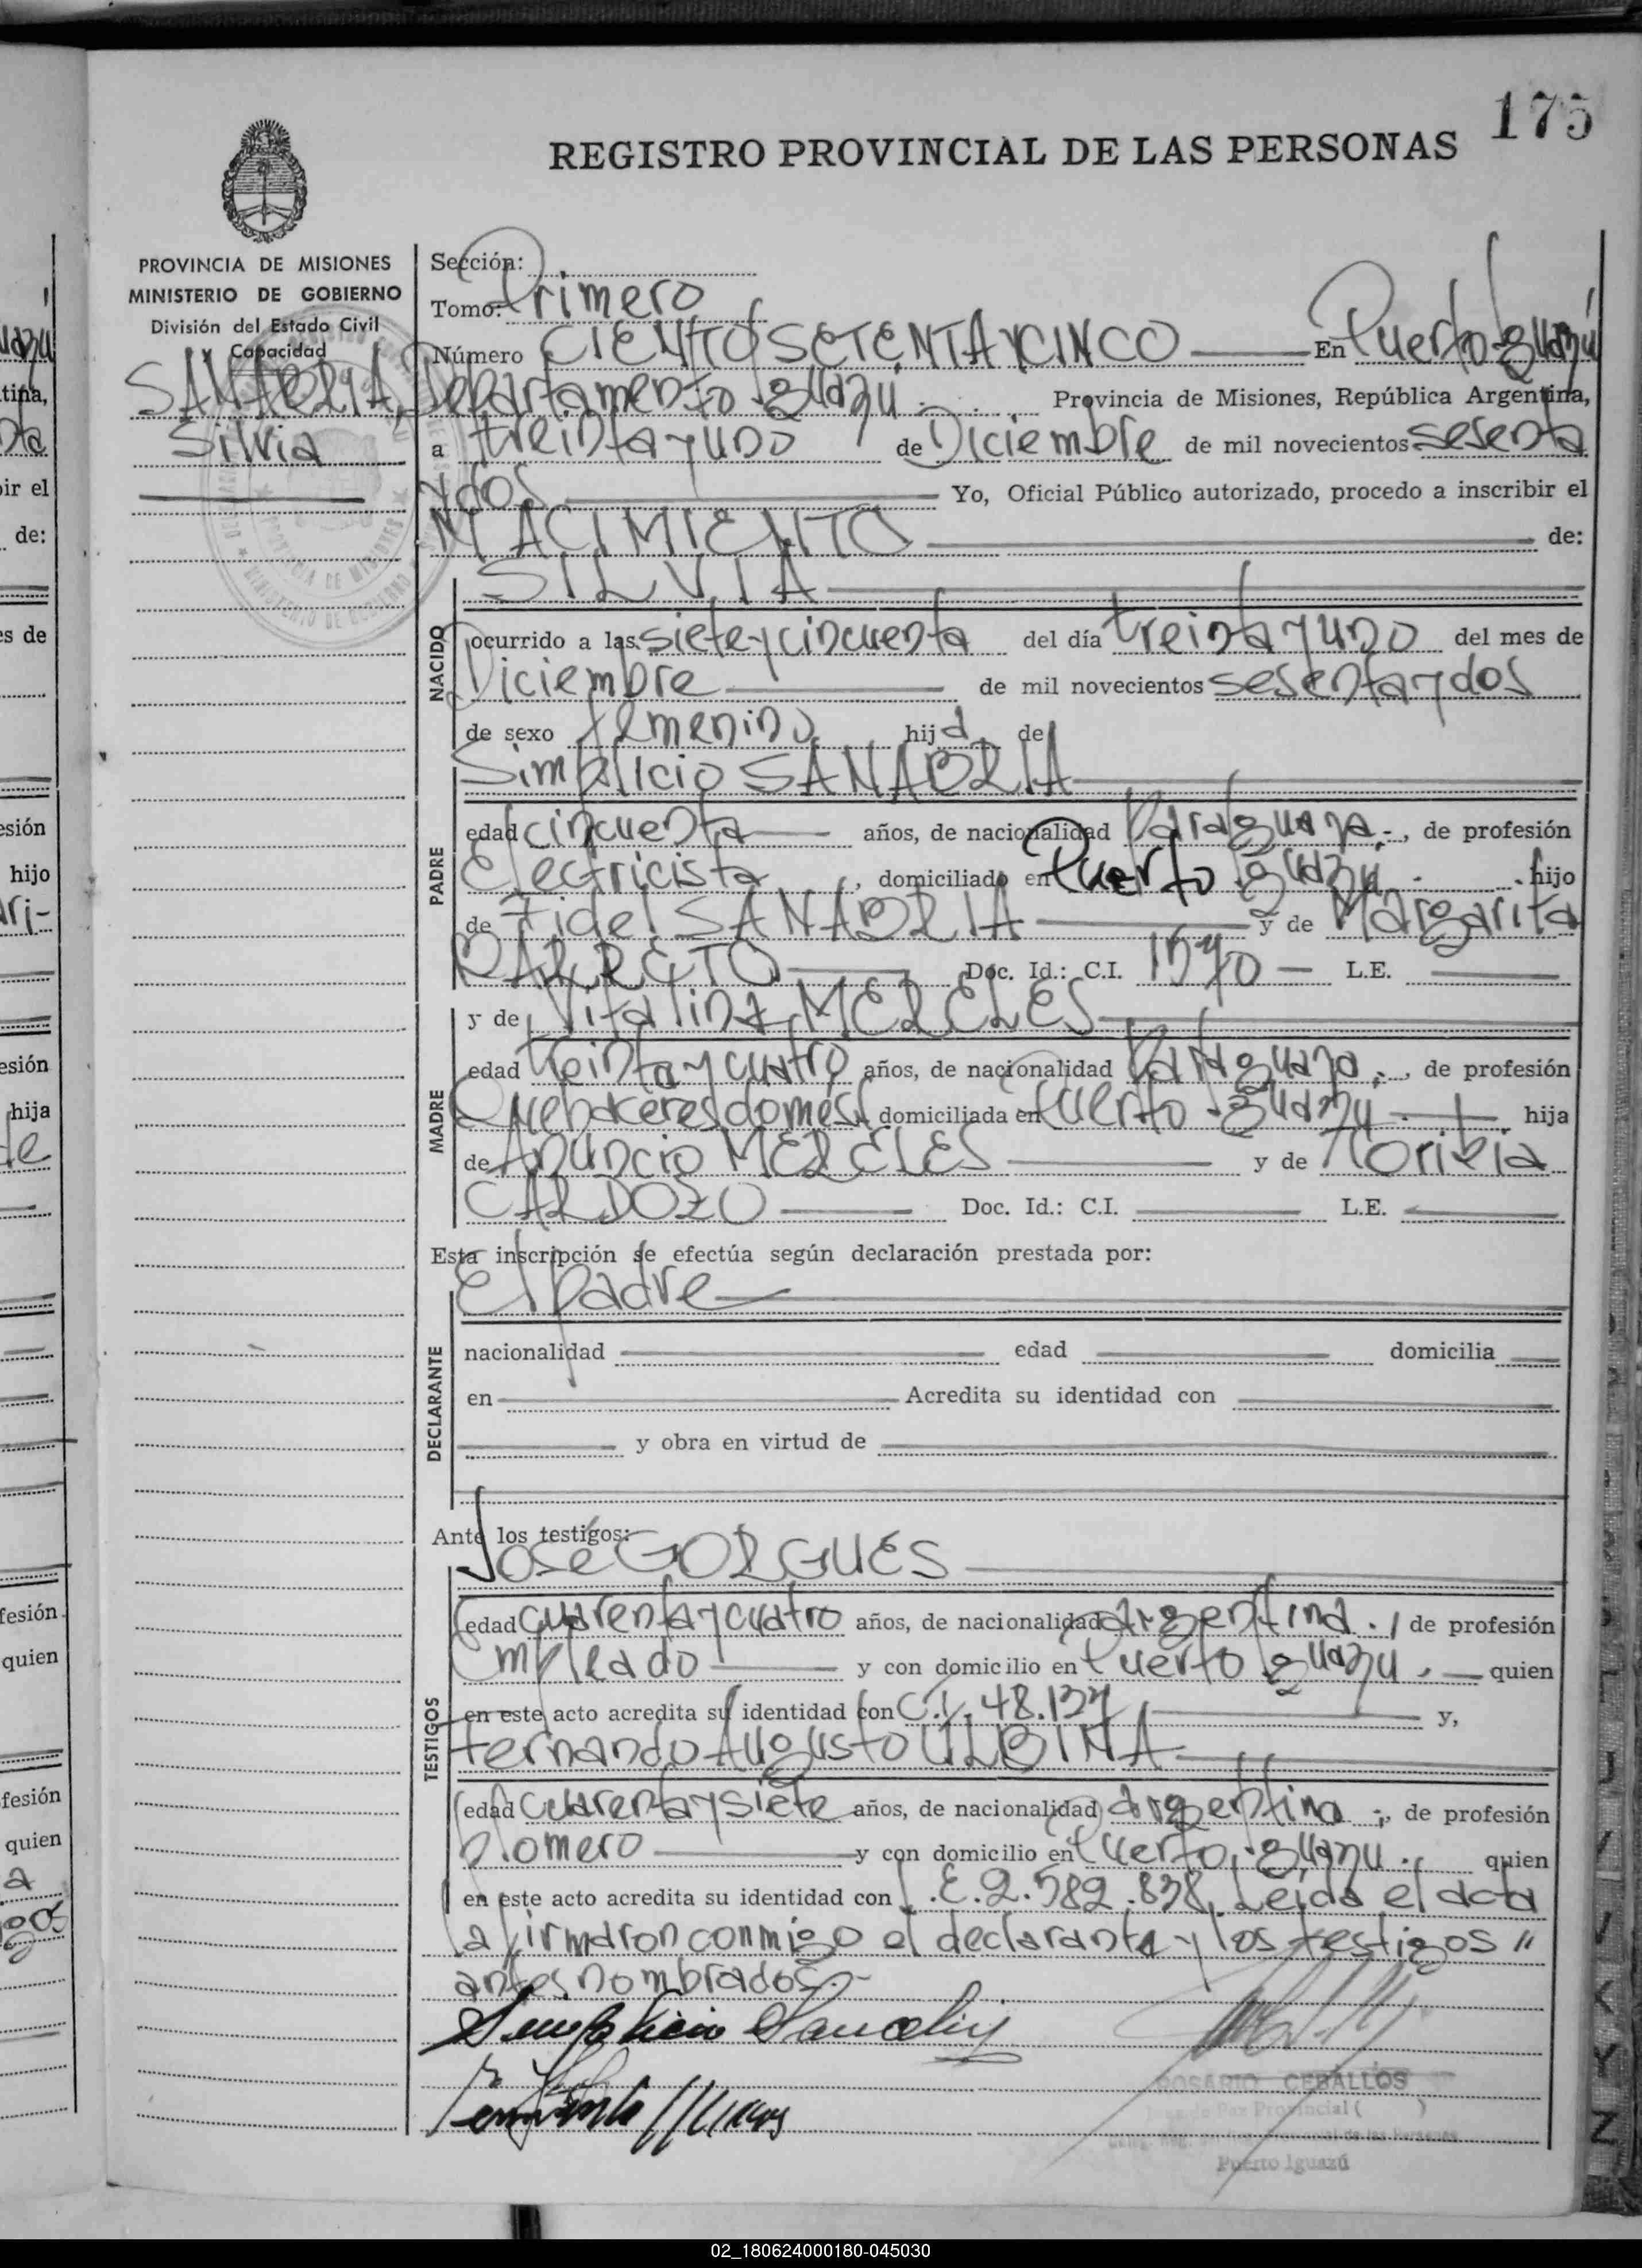 175
REGISTRO PROVINCIAL DE LAS PERSONAS
PROVINCIA DE MISIONES
MINISTERIO DE GOBIERNO
División del Estado Civil
y Capacidad
SANABRIA,
Silvia
Sección:
Tomo: Primero
Número CIENTO SETENTA Y CINCO En Puerto Iguazú
Departamento Iguazu. Provincia de Misiones, República Argentina,
a treinta y uno de Diciembre de mil novecientos sesenta
y dos Yo, Oficial Público autorizado, procedo a inscribir el
NACIMIENTO de:
SILVIA
NACIDO
ocurrido a las siete y cincuenta del día treinta y uno del mes de
Diciembre de mil novecientos sesenta y dos
de sexo femenino hija de
Simplicio SANABRIA
PADRE
edad cincuenta años, de nacionalidad Paraguaya.-, de profesión
Electricista, domiciliado en Puerto Iguazu. hijo
de Fidel SANABRIA y de Margarita
BARRETO Doc. Id.: C.I. L.E.
y de Vitalina MERELES
MADRE
edad treinta y cuatro años, de nacionalidad Paraguaya.-, de profesión
Quehaceres domest. domiciliada en Puerto Iguazu. hija
de Anuncio MERELES y de Toribia
CARDOZO Doc. Id.: C.I. L.E.
Esta inscripción se efectúa según declaración prestada por:
El padre
DECLARANTE
nacionalidad edad domicilia
en Acredita su identidad con
y obra en virtud de
Ante los testigos:
José GORGUES
TESTIGOS
edad cuarenta y cuatro años, de nacionalidad argentina., de profesión
Empleado y con domicilio en Puerto Iguazu. quien
en este acto acredita su identidad con C.I. 48.137 y,
Fernando Augusto
edad cuarenta y siete años, de nacionalidad argentina.-, de profesión
plomero y con domicilio en Puerto Iguazu. quien
en este acto acredita su identidad con L.E. 2.582.838. Leida el acta
la firmaron conmigo el declarante y los testigos "
antes nombrados.-
Simplicio Sanabria
ROSARIO CEBALLOS
Juez de Paz Provincial ( )
Puerto Iguazú
02_180624000180-045030